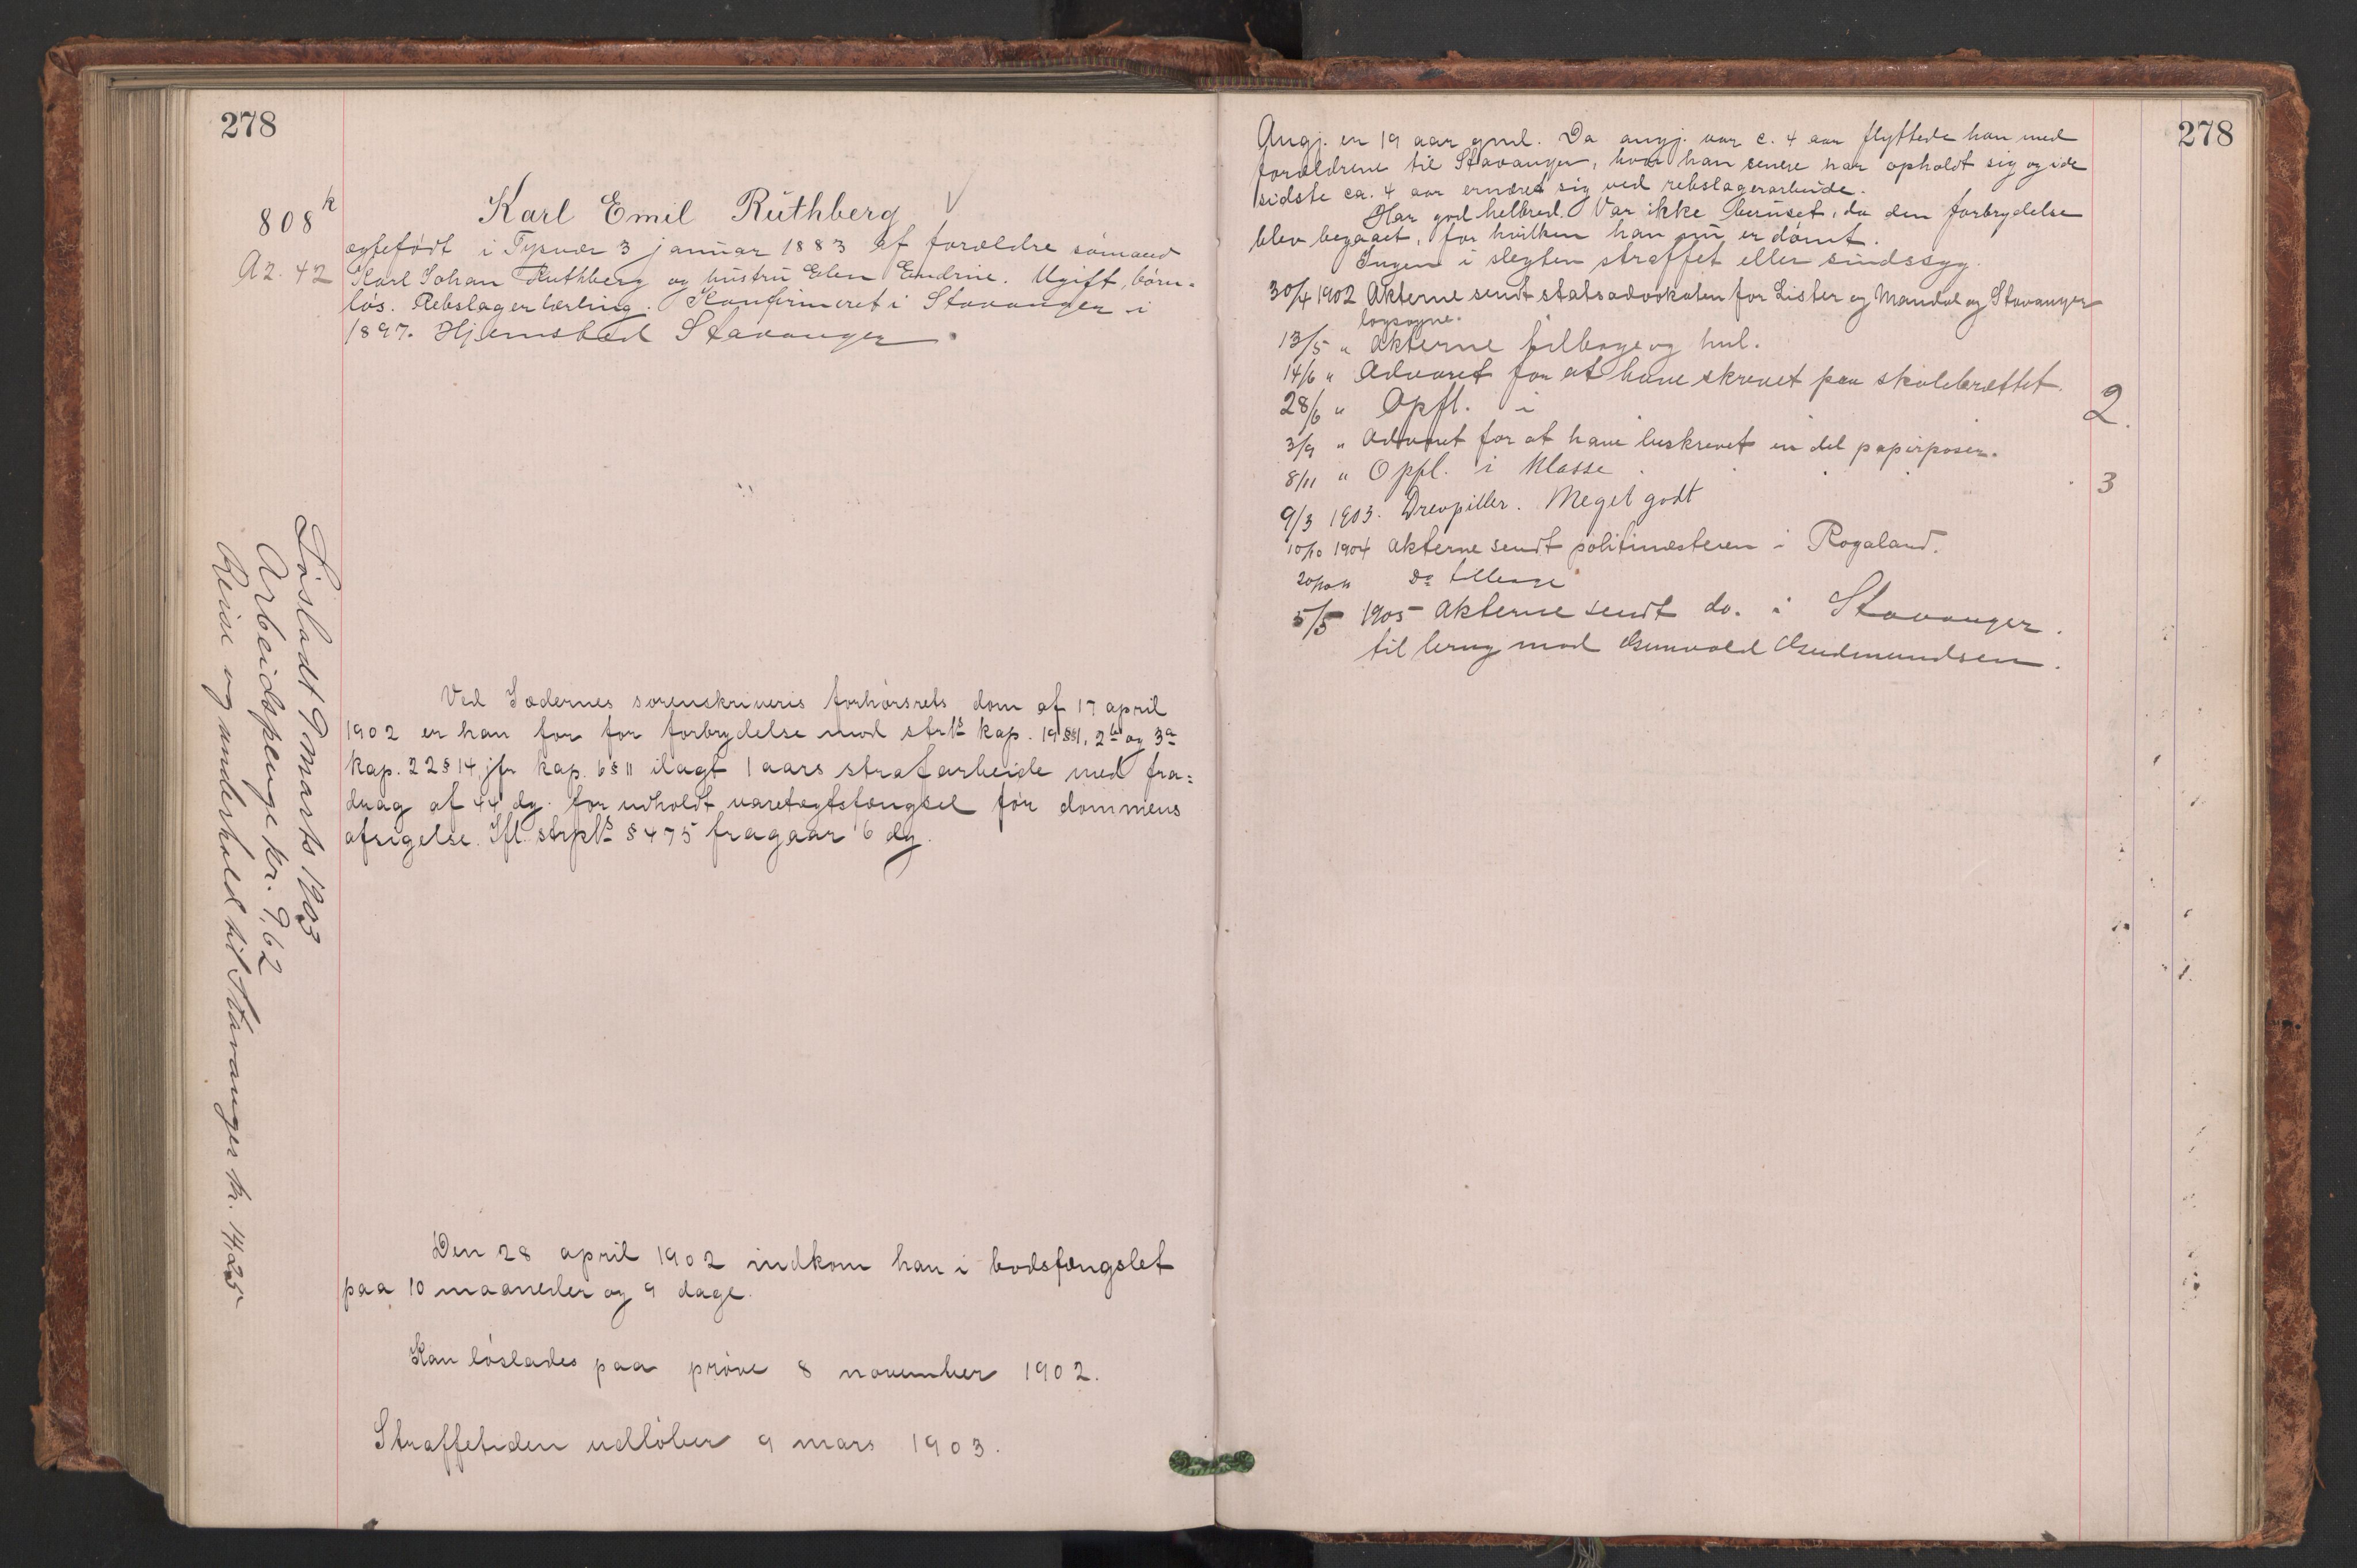 278
808 k
A2. 42
Karl Emil Ruthberg
ægtefødt i Tysvær 3 januar 1883 af forældre sømand
Karl Johan Ruthberg og hustru Elen Endrine. Ugift, børn-
løs. Rebslagerlærling. Konfirmeret i Stavanger i
1897. Hjemsted Stavanger.
Løsladt 9 marts 1903
Arbeidspenge kr. 9,62
Reise og underhold til Stavanger kr. 14,25
Ved Jædernes sorenskriveris forhørsrets dom af 17 april
1902 er han for for forbrydelse mod strls kap. 19 §§ 1, 2 b og 3 a
kap. 22 § 14, jfr kap. 6 § 11 ilagt 1 aars strafarbeide med fra-
drag af 44 dg. for udholdt varetægtsfængsel før dommens
afsigelse. Ifl. strpls § 475 fragaar 6 dg.
Den 28 april 1902 indkom han i bodsfængslet
paa 10 maaneder og 9 dage.
Kan løslades paa prøve 8 november 1902.
Straffetiden udløber 9 mars 1903.
278
Angj. er 19 aar gml. Da angj. var c. 4 aar flyttede han med
forældrene til Stavanger, hvor han senere har opholdt sig og i de
sidste ca. 4 aar ernæret sig ved rebslagerarbeide.
Har god helbred. Var ikke beruset, da den forbrydelse
blev begaaet, for hvilken han nu er dømt.
Ingen i slegten straffet eller sindssyg.
30/4 1902 Akterne sendt statsadvokaten for Lister og Mandal og Stavanger
lagsogne.
13/5 " Akterne tilbage og hul.
14/6 " Advaret for at have skrevet paa skolebrættet.
28/6 " Opfl. i 2.
3/9 " Advaret for at have beskrevet en del papirposer.
8/11 " Opfl. i klasse 3
9/3 1903. Drevpiller. Meget godt
10/10 1904 Akterne sendt politimesteren i Rogaland.
20/10 " Do tilbage
5/5 1905 Akterne sendt do. i Stavanger.
til brug mod Gunvald Gudmundsen.